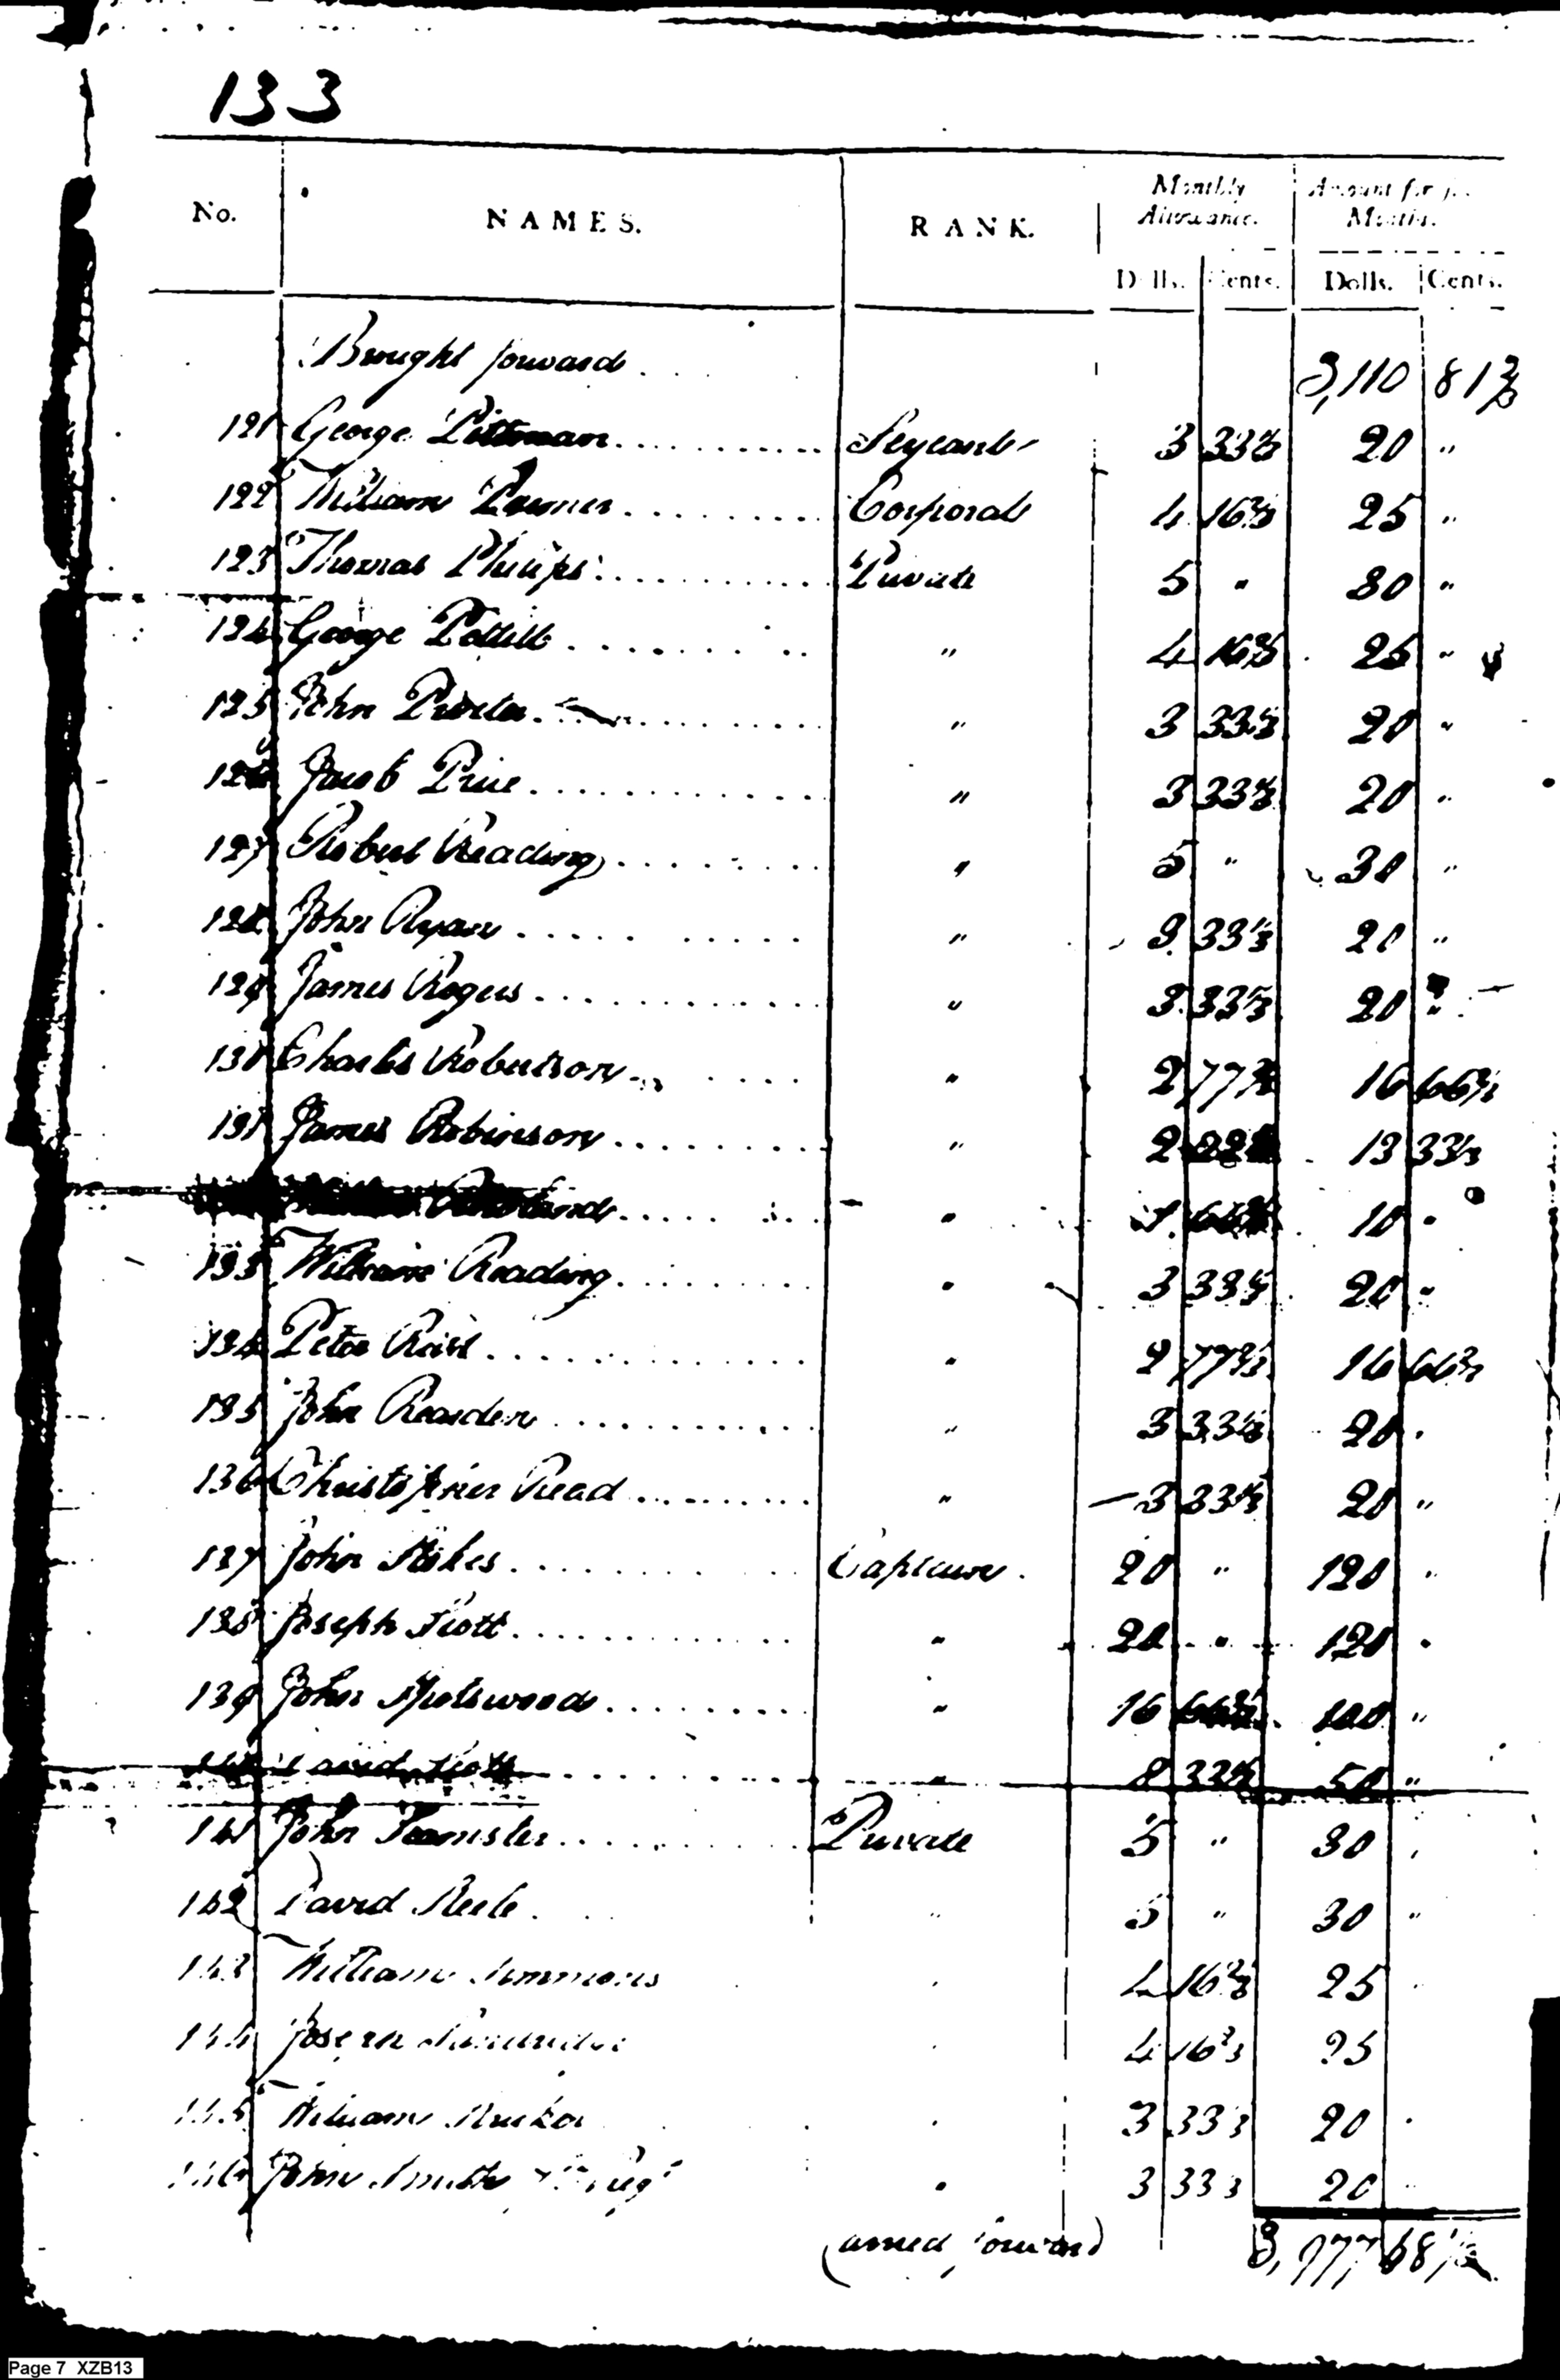 133
No. NAMES. RANK. Monthly Allowance. Amount for Months.
Dolls. Cents. Dolls. Cents.
Brought forward 3,110 81 2/3
121 George Pittman Serjeant 3 33 1/3 20 "
122 William Corporal 4 16 2/3 25 "
123 Thomas Philips Private 5 " 30 "
124 George " 4 16 2/3 25 "
125 John " 3 33 1/3 20 "
126 Jacob Price " 3 33 1/3 20 "
127 Robert Reading " 5 " 30 "
128 John Ryan " 3 33 1/3 20 "
129 James Rogers " 3 33 1/3 20 "
130 Charles Robertson " 2 77 16 66 2/3
131 James Robinson " 2 22 13 33 1/3
Rowland " 1 66 10 "
133 William Reading " 3 33 1/3 20 "
134 Peter " 2 77 16 66 2/3
135 John Rearden " 3 33 1/3 20 "
136 Christopher Read " 3 33 1/3 20 "
137 John Stokes Captain 20 " 120 "
138 Joseph Scott " 20 " 120 "
139 John Spotswood " 16 66 2/3 100 "
140 David Scott " 8 33 1/3 50 "
141 John Private 5 " 30 "
142 David Steele " 5 " 30 "
143 William Simmons " 4 16 2/3 25 "
144 Joseph " 4 16 2/3 25
145 William " 3 33 1/3 20 "
146 John Smith " 3 33 1/3 20 "
Carried forward 3,977 48
Page 7 XZB13